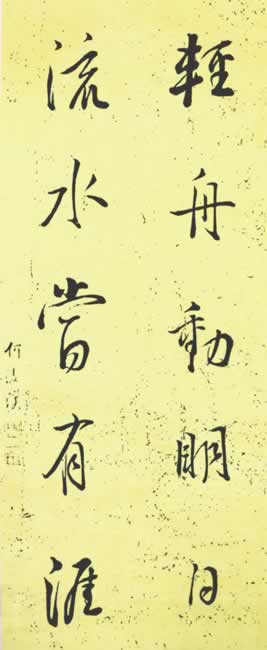 輕舟動明日
流水當有涯